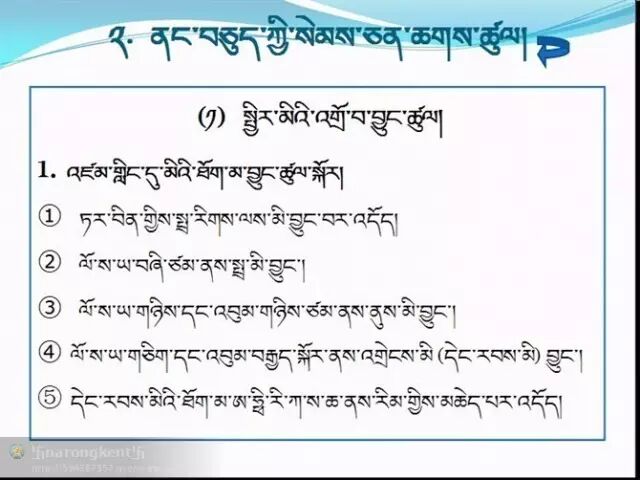 ༢. ནང་བཅུད་ཀྱི་སེམས་ཅན་ཆགས་ཚུལ།
(༡) སྤྱིར་མིའི་འགྲོ་བ་བྱུང་ཚུལ།
1. འཛམ་གླིང་དུ་མིའི་ཐོག་མ་བྱུང་ཚུལ་སྐོར།
① ཏར་བིན་གྱིས་སྤྲ་རིགས་ལས་མི་བྱུང་བར་འདོད།
② ལོ་ས་ཡ་བཞི་ཙམ་ནས་སྤྲ་མི་བྱུང་།
③ ལོ་ས་ཡ་གཉིས་དང་འབུམ་གཉིས་ཙམ་ནས་ནུས་མི་བྱུང་།
④ ལོ་ས་ཡ་གཅིག་དང་འབུམ་བརྒྱད་སྐོར་ནས་འགྲེངས་མི (དེང་རབས་མི) བྱུང་།
⑤ དེང་རབས་མིའི་ཐོག་མ་ཨ་ཧྥི་རི་ཀ་ས་ཆ་ནས་རིམ་གྱིས་མཆེད་པར་འདོད།
卐narongkent卐